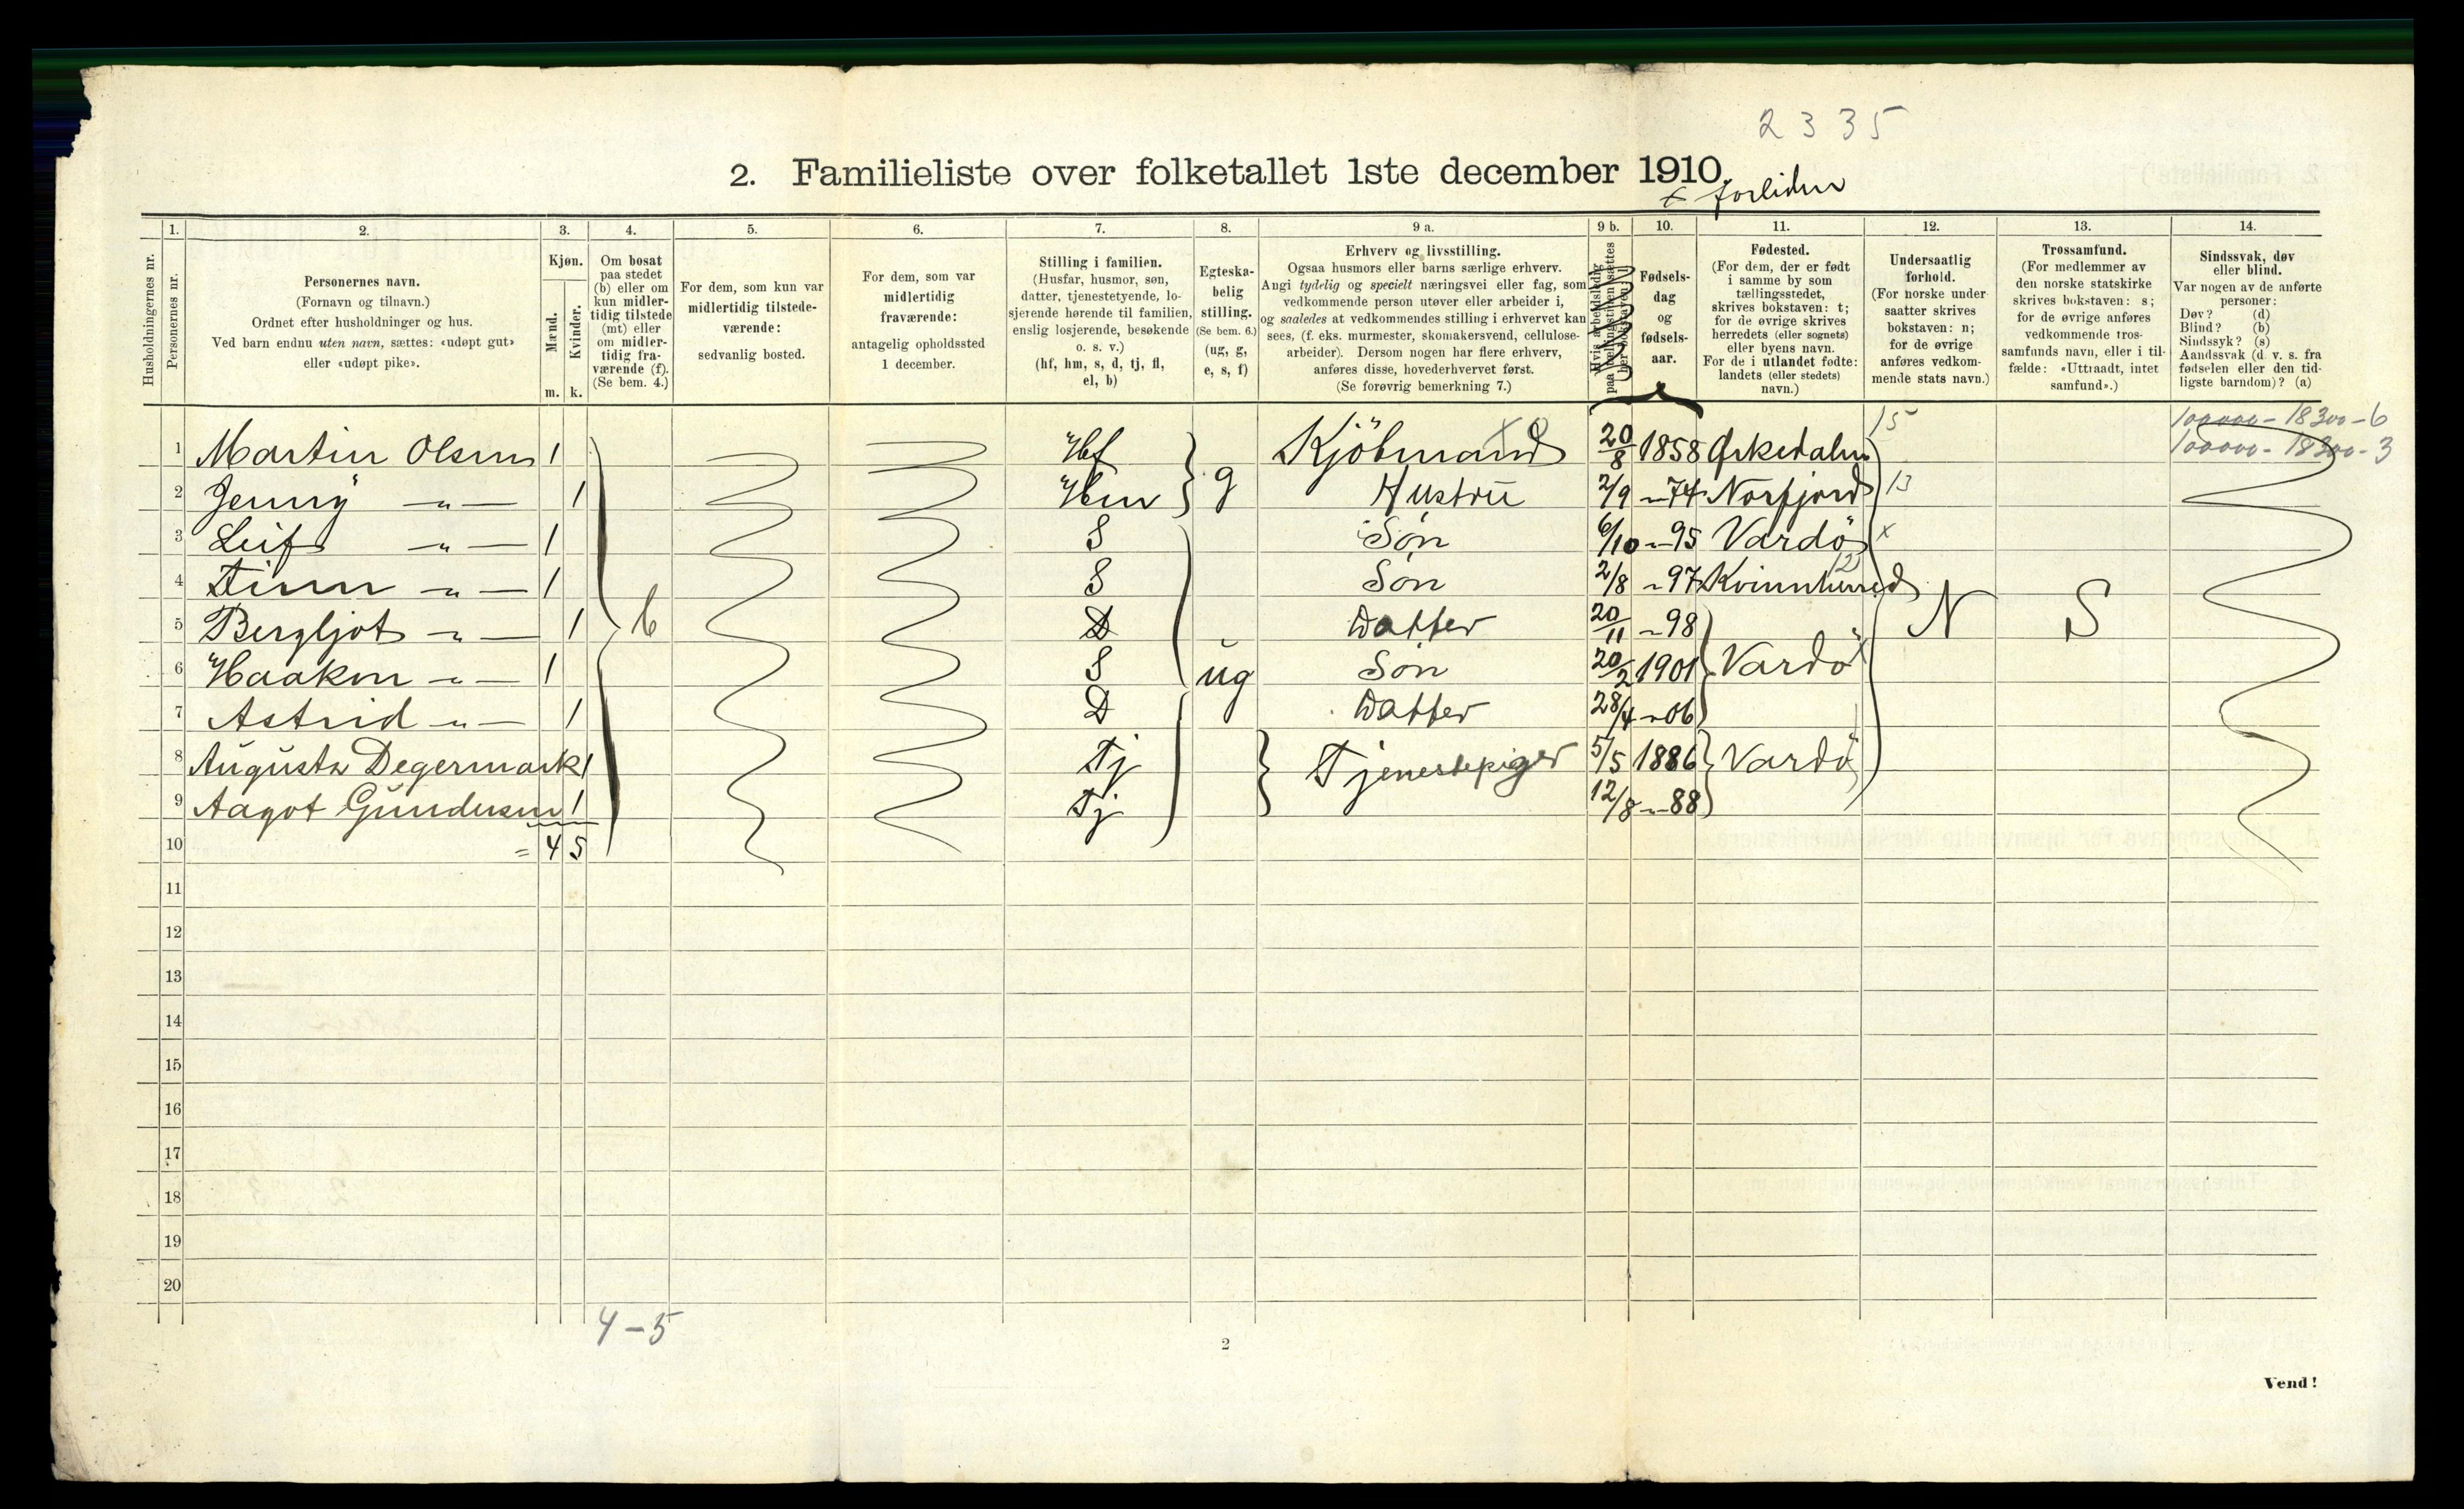 2335
2. Familieliste over folketallet 1ste december 1910.
1. 2. 3. 4. 5. 6. 7. 8. 9 a. 9 b. 10. 11. 12. 13. 14.
Husholdningernes nr.
Personernes nr.
Personernes navn.
(Fornavn og tilnavn.)
Ordnet efter husholdninger og hus.
Ved barn endnu uten navn, sættes: «udøpt gut»
eller «udøpt pike».
Kjøn.
Mænd.
Kvinder.
m. k.
Om bosat
paa stedet
(b) eller om
kun midler-
tidig tilstede
(mt) eller
om midler-
tidig fra-
værende (f).
(Se bem. 4.)
For dem, som kun var
midlertidig tilstede-
værende:
sedvanlig bosted.
For dem, som var
midlertidig
fraværende:
antagelig opholdssted
1 december.
Stilling i familien.
(Husfar, husmor, søn,
datter, tjenestetyende, lo-
sjerende hørende til familien,
enslig losjerende, besøkende
o. s. v.)
(hf, hm, s, d, tj, fl,
el, b)
Egteska-
belig
stilling.
(Se bem. 6.)
(ug, g,
e, s, f)
Erhverv og livsstilling.
Ogsaa husmors eller barns særlige erhverv.
Angi tydelig og specielt næringsvei eller fag, som
vedkommende person utøver eller arbeider i,
og saaledes at vedkommendes stilling i erhvervet kan
sees, (f. eks. murmester, skomakersvend, cellulose-
arbeider). Dersom nogen har flere erhverv,
anføres disse, hovederhvervet først.
(Se forøvrig bemerkning 7.)
Hvis arbeidsledig
Fødsels-
dag
og
fødsels-
aar.
Fødested.
(For dem, der er født
i samme by som
tællingsstedet,
skrives bokstaven: t;
for de øvrige skrives
herredets (eller sognets)
eller byens navn.
For de i utlandet fødte:
landets (eller stedets)
navn.)
Undersaatlig
forhold.
(For norske under
saatter skrives
bokstaven: n;
for de øvrige
anføres vedkom-
mende stats navn.)
Trossamfund.
(For medlemmer av
den norske statskirke
skrives bokstaven: s;
for de øvrige anføres
vedkommende tros-
samfunds navn, eller i til-
fælde: «Uttraadt, intet
samfund».)
Sindssvak, døv
eller blind.
Var nogen av de anførte
personer:
Døv? (d)
Blind? (b)
Sindssyk? (s)
Aandssvak (d. v. s. fra
fødselen eller den tid-
ligste barndom)? (a)
100000 - 18300 - 6
100000 - 18300 - 3
1 Martin Olsen 1 Hf Kjöbmand 20/8 1858 Ørkedalen 15
2 Jenny -"- 1 Hm g Hustru 2/9 -"- 74 Norfjord 13
3 Leif -"- 1 S Søn 6/10 -"- 95 Vardö x
4 Finn -"- 1 S Søn 2/8 -"- 97 Kvinnherred 12
5 Bergljot -"- 1 b D Datter 20/11 -"- 98 N S
6 Haakon -"- 1 S ug Søn 20/2 1901 Vardö x
7 Astrid -"- 1 D Datter 28/4 -"- 06
8 Augusta Degermark 1 Tj Tjenestepiger 5/5 1886 Vardö
9 Aagot Gundersen 1 Tj 12/8 -"- 88
10 = 4 5
11
12
13
14
15
16
17
18
19
20
4-5
2
Vend!